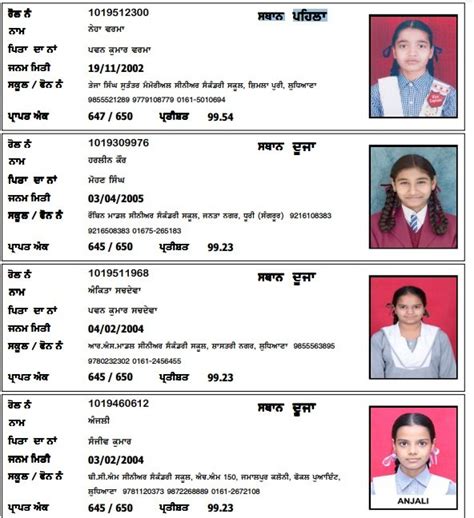 ਰੋਲ ਨੰ 1019512300 ਸਥਾਨ ਪਹਿਲਾ
ਨਾਮ ਨੇਹਾ ਵਰਮਾ
ਪਿਤਾ ਦਾ ਨਾਂ ਪਵਨ ਕੁਮਾਰ ਵਰਮਾ
ਜਨਮ ਮਿਤੀ 19/11/2002
ਸਕੂਲ / ਫੋਨ ਨੰ ਤੇਜਾ ਸਿੰਘ ਸੁਤੰਤਰ ਮੈਮੋਰੀਅਲ ਸੀਨੀਅਰ ਸੈਕੰਡਰੀ ਸਕੂਲ, ਸ਼ਿਮਲਾ ਪੁਰੀ, ਲੁਧਿਆਣਾ
9855521289 9779108779 0161-5010694
ਪ੍ਰਾਪਤ ਅੰਕ 647 / 650 ਪ੍ਰਤੀਸ਼ਤ 99.54
ਰੋਲ ਨੰ 1019309976 ਸਥਾਨ ਦੂਜਾ
ਨਾਮ ਹਰਲੀਨ ਕੌਰ
ਪਿਤਾ ਦਾ ਨਾਂ ਮੋਹਣ ਸਿੰਘ
ਜਨਮ ਮਿਤੀ 03/04/2005
ਸਕੂਲ / ਫੋਨ ਨੰ ਰੌਬਿਨ ਮਾਡਲ ਸੀਨੀਅਰ ਸੈਕੰਡਰੀ ਸਕੂਲ, ਜਨਤਾ ਨਗਰ, ਧੂਰੀ (ਸੰਗਰੂਰ) 9216108383
9216508383 01675-265183
ਪ੍ਰਾਪਤ ਅੰਕ 645 / 650 ਪ੍ਰਤੀਸ਼ਤ 99.23
ਰੋਲ ਨੰ 1019511968 ਸਥਾਨ ਦੂਜਾ
ਨਾਮ ਅੰਕਿਤਾ ਸਚਦੇਵਾ
ਪਿਤਾ ਦਾ ਨਾਂ ਪਵਨ ਕੁਮਾਰ ਸਚਦੇਵਾ
ਜਨਮ ਮਿਤੀ 04/02/2004
ਸਕੂਲ / ਫੋਨ ਨੰ ਆਰ.ਐਸ.ਮਾਡਲ ਸੀਨੀਅਰ ਸੈਕੰਡਰੀ ਸਕੂਲ, ਸ਼ਾਸਤਰੀ ਨਗਰ, ਲੁਧਿਆਣਾ 9855563895
9780232302 0161-2456455
ਪ੍ਰਾਪਤ ਅੰਕ 645 / 650 ਪ੍ਰਤੀਸ਼ਤ 99.23
ਰੋਲ ਨੰ 1019460612 ਸਥਾਨ ਦੂਜਾ
ਨਾਮ ਅੰਜਲੀ
ਪਿਤਾ ਦਾ ਨਾਂ ਸੰਜੀਵ ਕੁਮਾਰ
ਜਨਮ ਮਿਤੀ 03/02/2004
ਸਕੂਲ / ਫੋਨ ਨੰ ਬੀ.ਸੀ.ਐਮ ਸੀਨੀਅਰ ਸੈਕੰਡਰੀ ਸਕੂਲ, ਐਚ.ਐਮ 150, ਜਮਾਲਪੁਰ ਕਲੋਨੀ, ਫੋਕਲ ਪੁਆਇੰਟ,
ਲੁਧਿਆਣਾ 9781120373 9872268889 0161-2672108
ਪ੍ਰਾਪਤ ਅੰਕ 645 / 650 ਪ੍ਰਤੀਸ਼ਤ 99.23
ANJALI